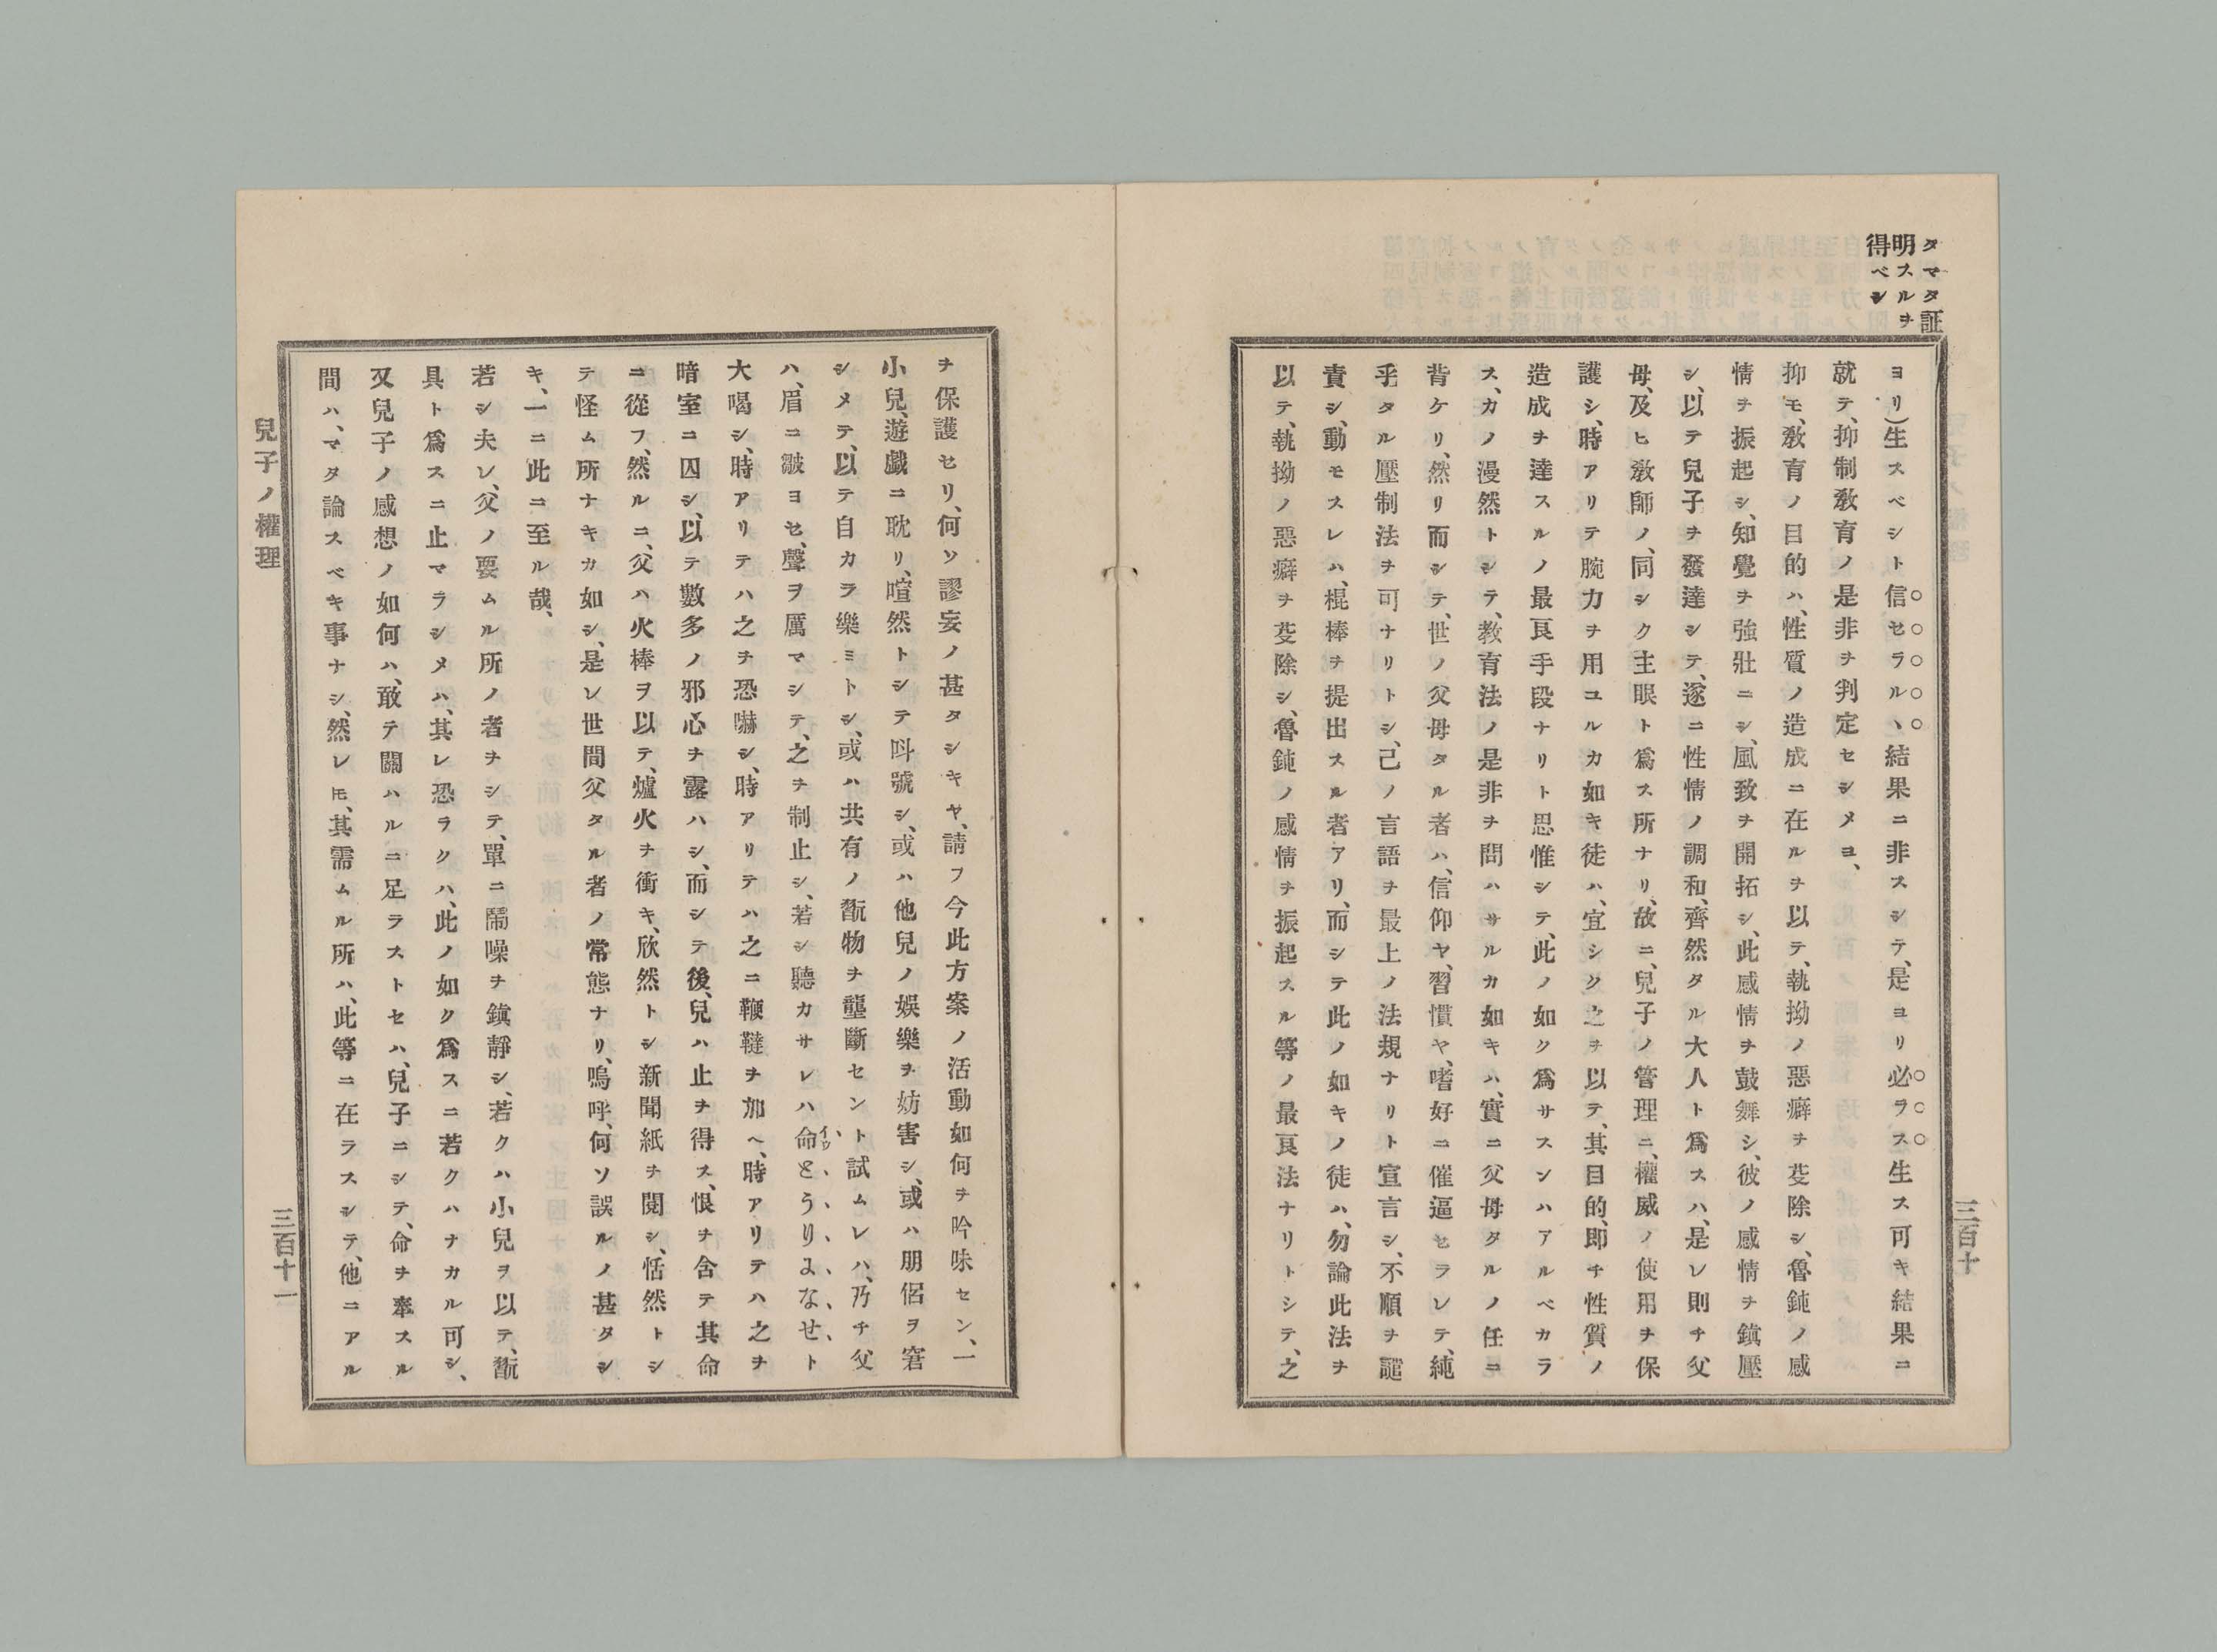 タマタ証
明スルヲ
得ベシ
ヨリ)生スベシト信セラル、結果ニ非スシテ、是ヨリ必ラス生ス可キ結果ニ
就テ、抑制敎育ノ是非ヲ判定セシメヨ、
抑モ、敎育ノ目的ハ、性質ノ造成ニ在ルヲ以テ、執拗ノ惡癖ヲ芟除シ、魯鈍ノ感
情ヲ振起シ、知覺ヲ強壯ニシ、風致ヲ開拓シ、此感情ヲ鼓舞シ、彼ノ感情ヲ鎭壓
シ、以テ兒子ヲ發達シテ、遂ニ性情ノ調和、齊然タル大人ト爲スハ、是レ則チ父
母、及ヒ敎師ノ、同シク主眼ト爲ス所ナリ、故ニ、兒子ノ管理ニ、權威ノ使用ヲ保
護シ、時アリテ腕力ヲ用ユルカ如キ徒ハ、宜シク之ヲ以テ、其目的、即チ性質ノ
造成ヲ達スルノ最良手段ナリト思惟シテ、此ノ如ク爲サスンハアルベカラ
ス、カノ漫然トシテ、教育法ノ是非ヲ問ハサルカ如キハ、實ニ父母タルノ任ニ
背ケリ、然リ而シテ、世ノ父母タル者ハ、信仰ヤ、習慣ヤ、嗜好ニ催逼セラレテ、純
乎タル壓制法ヲ可ナリトシ、己ノ言語ヲ最上ノ法規ナリト宣言シ、不順ヲ譴
責シ、動モスレハ、棍棒ヲ提出スル者アリ、而シテ此ノ如キノ徒ハ、勿論此法ヲ
以テ、執拗ノ惡癖ヲ芟除シ、魯鈍ノ感情ヲ振起スル等ノ最良法ナリトシテ、之
三百十
ヲ保護セリ、何ソ謬妄ノ甚タシキヤ、請フ今此方案ノ活動如何ヲ吟味セン、一
小兒、遊戯ニ耽リ、喧然トシテ呌號シ、或ハ他兒ノ娯樂ヲ妨害シ、或ハ朋侶ヲ窘
シメテ、以テ自カラ樂ミトシ、或ハ共有ノ翫物ヲ壟斷セント試ムレハ、乃チ父
ハ、眉ニ皺ヨセ、聲ヲ厲マシテ、之ヲ制止シ、若シ聽カサレハ命とうりよなせト
大喝シ、時アリテハ之ヲ恐嚇シ、時アリテハ之ニ鞭韃ヲ加ヘ、時アリテハ之ヲ
暗室ニ囚シ、以テ數多ノ邪心ヲ露ハシ、而シテ後、兒ハ止ヲ得ス、恨ヲ含テ其命
ニ從フ、然ルニ、父ハ火棒ヲ以テ、爐火ヲ衝キ、欣然トシ新聞紙ヲ閲シ、恬然トシ
テ怪ム所ナキカ如シ、是レ世間父タル者ノ常態ナリ、嗚呼、何ソ誤ルノ甚タシ
キ、一ニ此ニ至ル哉、
若シ夫レ、父ノ要ムル所ノ者ヲシテ、單ニ鬧噪ヲ鎭靜シ、若クハ小兒ヲ以テ、翫
具ト爲スニ止マラシメハ、其レ恐ラクハ、此ノ如ク爲スニ若クハナカル可シ、
又兒子ノ感想ノ如何ハ、敢テ關ハルニ足ラストセハ、兒子ニシテ、命ヲ奉スル
間ハ、マタ論スベキ事ナシ、然レ𪜈、其需ムル所ハ、此等ニ在ラスシテ、他ニアル
兒子ノ權理
三百十一